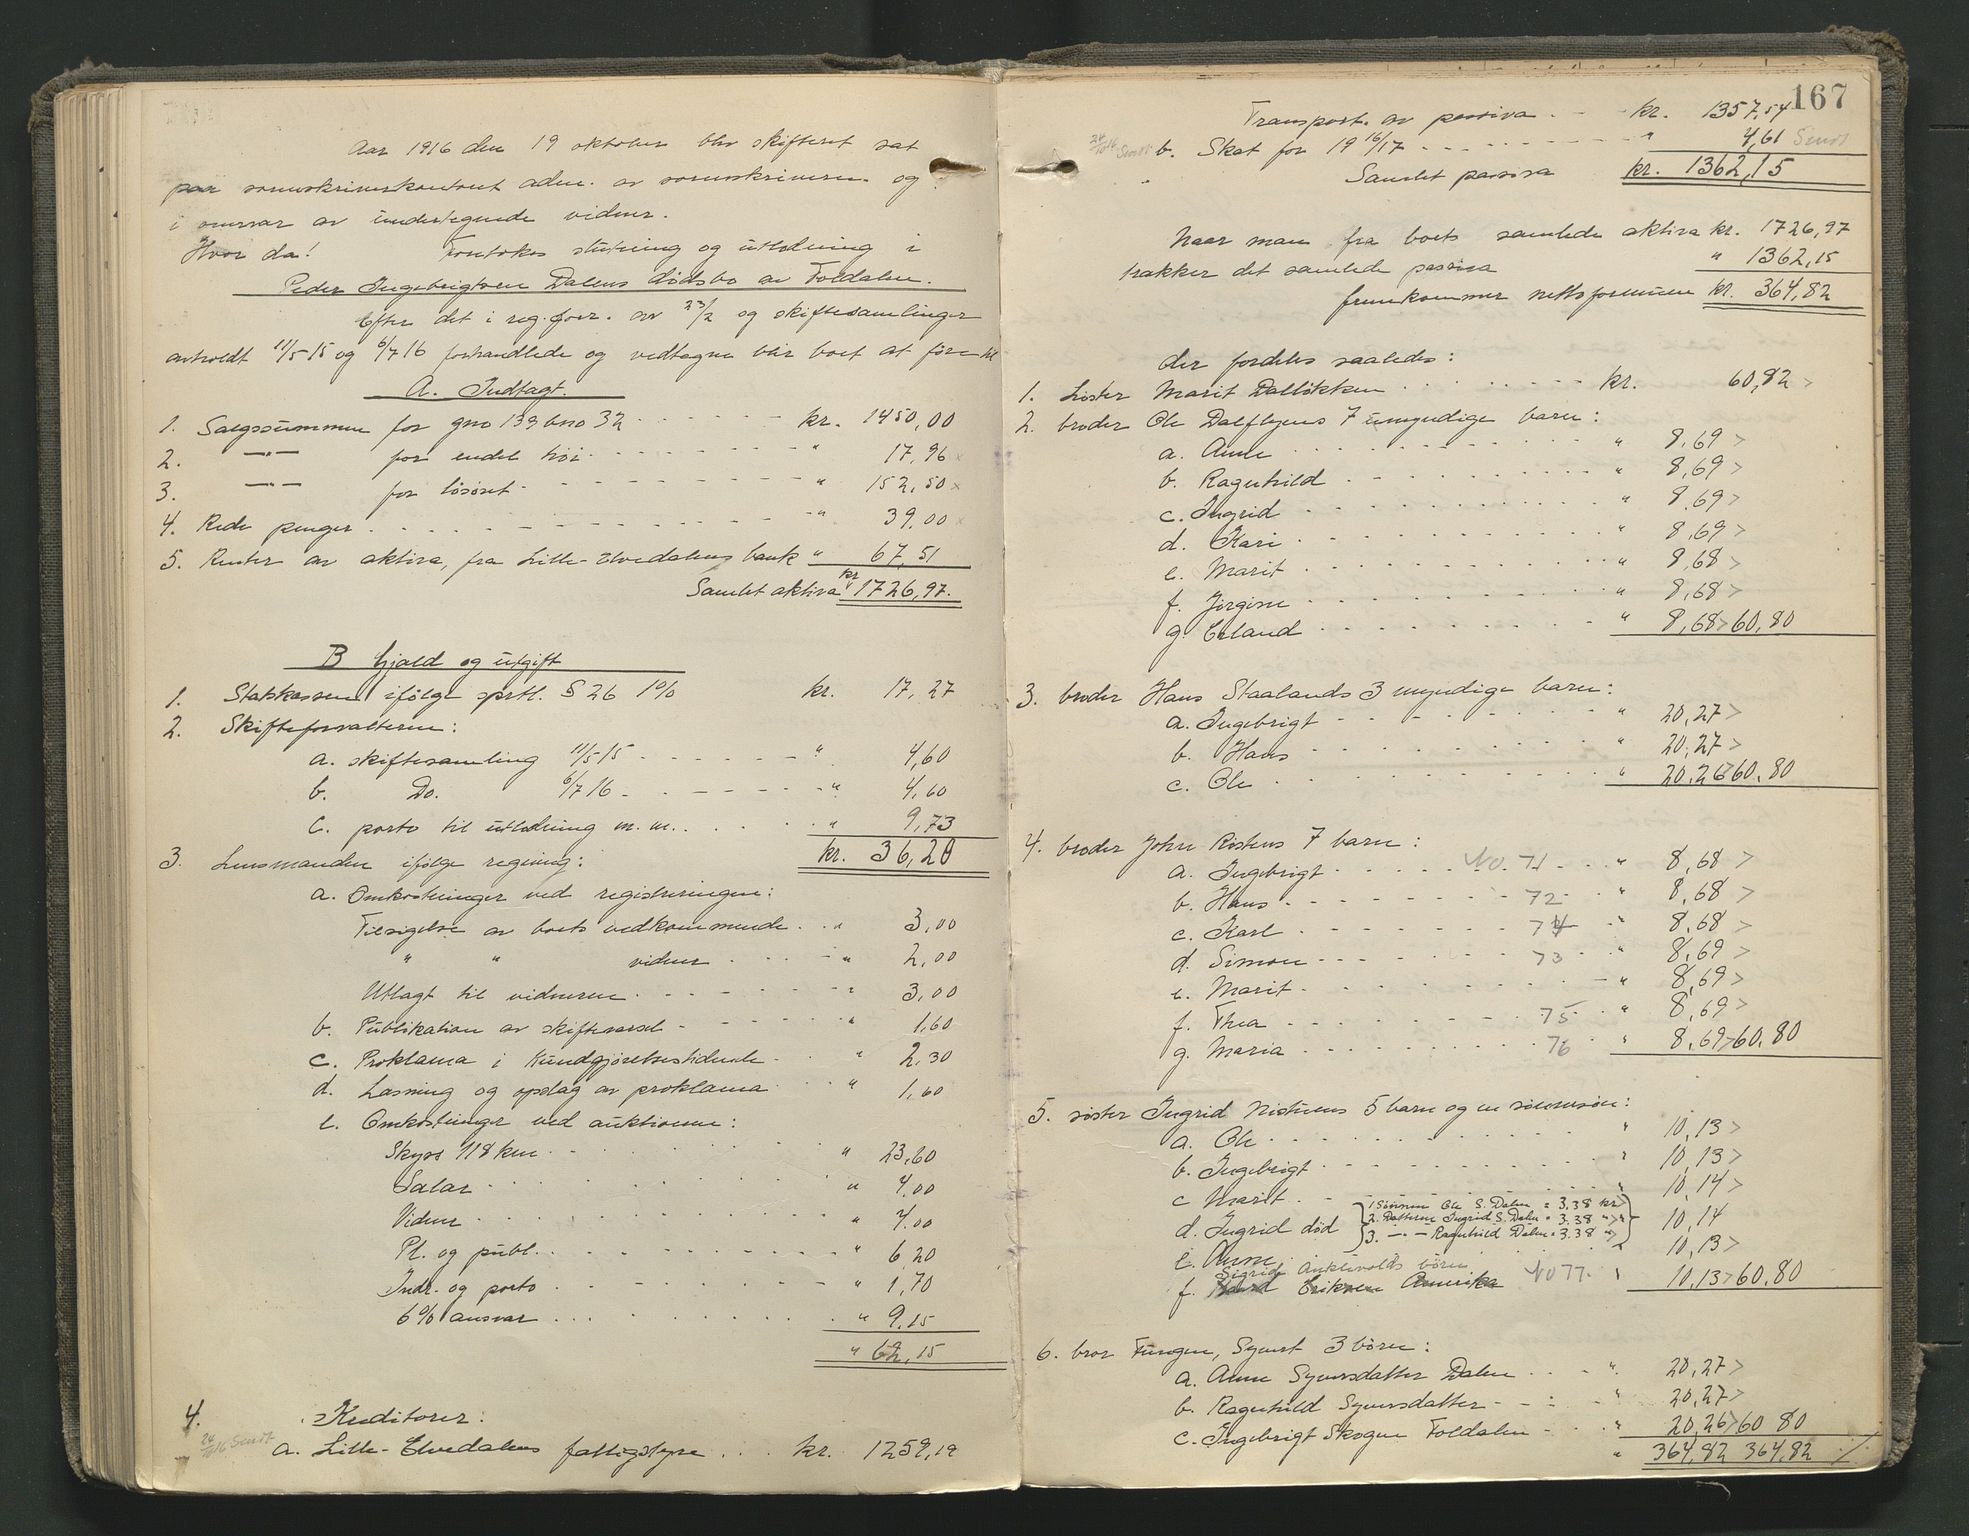 Aar 1916 den 19 oktober blev skifteret sat
paa sorenskriverkontoret adm. av sorenskriveren og
i overvær av undertegnede vidner.
Hvor da! Foretokes slutning og utlodning i
Peder Ingebrigtsen Dalens dødsbo av Foldalen.
Efter det i reg.forr. av 23/2 og skiftesamlinger
avholdt 11/5-15 og 6/7 16 forhandlede og vedtagne blir boet at føre til
A. Indtægt.
1. Salgssummen for gno 139 bno 32 kr. 1450,00
2. —"— for endel høi " 17,96
3. —"— for løsøret " 152,50
4. Rede penger " 39,00
5. Renter av aktiva, fra Lille-Elvedalens bank " 67,51
Samlet aktiva kr 1726,97.
B Gjæld og utgift
1. Statskassen ifølge sprtl. § 26 1% kr. 17,27
2. Skifteforvalteren:
a. skiftesamling 11/5 15 " 4,60
b. Do. 6/7 16 " 4,60
c. porto til utlodning m.m. " 9,73
kr. 36,20
3. Lensmanden ifølge regning:
a. Omkostninger ved registreringen:
Tilsigelse av boets vedkommende " 3,00
" " vidner " 2,00
Utlagt til vidnerne " 3,00
b. Publikation av skiftevarsel " 1,60
c. Proklama i Kundgjørelsestidende " 2,30
d. Læsning og opslag av proklama " 1,60
e. Omkostninger ved auktionen:
Skyss 118 km " 23,60
Salær " 4,00
Vidner " 4.00
Pl. og publ. " 6,20
Indr. og porto " 1,70
6% ansvar " 9,15
" 62,15
4. Kreditorer:
24/10 16 Sendt
a. Lille-Elvedalens fattigstyre kr. 1259,19
167
Transport av passiva kr. 1357,54
24/10 16 Sendt b. Skat for 19 16/17 " 4,61 Sendt
Samlet passiva kr. 1362,15
Naar man fra boets samlede aktiva kr. 1726,97
trækker det samlede passiva " 1362,15
fremkommer nettoformuen kr. 364,82
der fordeles saaledes:
1. Søster Marit Dalløkken kr. 60,82
2. broder Ole Dalflyens 7 umyndige barn:
a. Anne " 8,69
b. Ragnhild " 8,69
c. Ingrid " 8,69
d. Kari " 8,69
e. Marit " 8,68
f. Jørgine " 8,68
g. Erland " 8,68 60,80
3. broder Hans Staalands 3 myndige barn:
a. Ingebrigt " 20,27
b. Hans " 20,27
c. Ole " 20,26 60,80
4. broder John Ristens 7 barn:
a. Ingebrigt No. 71 " 8,68
b. Hans 72 " 8,68
c. Karl 74 " 8,68
d. Simon 73 " 8,69
e. Marit " 8,69
f. Thea 75 " 8,69
g. Maria 76 " 8,69 60,80
5. søster Ingrid Nistuens 5 barn og en sønnesøn:
a. Ole " 10,13
b. Ingebrigt " 10,13
c Marit 10,14
1. Sønnen Ole S. Dalen = 3,38 kr
d. Ingrid død 2. Datteren Ingrid S. Dalen = 3,38 " 10,14
3. —"— Ragnhild Dalen = 3,38 "
e. Anne 10,13
Sigrid børn
f. Eriksen Amerika No 77. " 10,13 60,80
6. bror Tungen, Syvert 3 børn:
a. Anne Syversdatter Dalen " 20,27
b. Ragnhild Syversdatter " 20,27
c. Ingebrigt Skogen Foldalen " 20,26 60 80
" 364,82 364,82 ./.